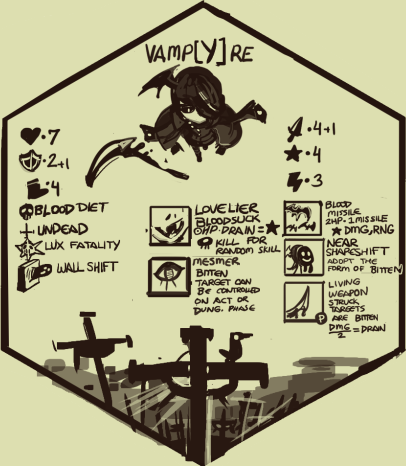 VAMP[Y]RE
•7
•2+1
•4
BLOOD DIET
UNDEAD
LUX FATALITY
WALL SHIFT
•4+1
•4
•3
LOVELIER
BLOODSUCK
HP•DRAIN=★
KILL FOR
RANDOM SKILL
MESMER
BITTEN
TARGET CAN
BE CONTROLLED
ON ACT OR
DUNG. PHASE
BLOOD
MISSILE
2HP•1MISSILE
★ DMG,RNG
NEAR
SHAPESHIFT
ADOPT THE
FORM OF BITTEN
LIVING
WEAPON
STRUCK
TARGETS
ARE BITTEN
DMG/2 = DRAIN
P